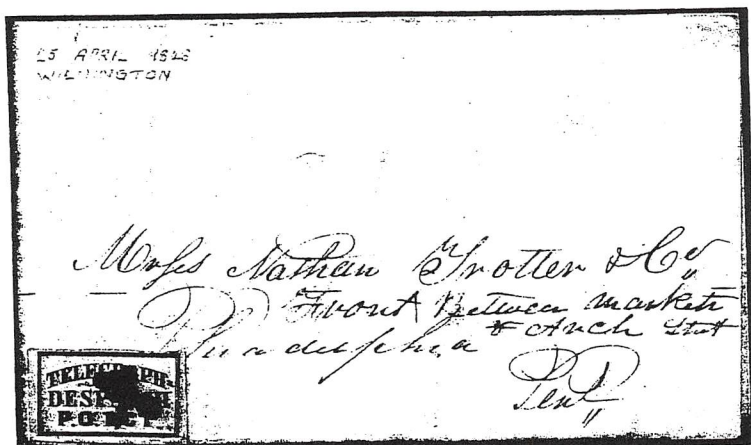 25 APRIL 1848
WILMINGTON
Messrs Nathan Trotter & Co
Front Between Market
& Arch Street
Philadelphia
Penn
TELEGRAPH
DESPATCH
P.O.